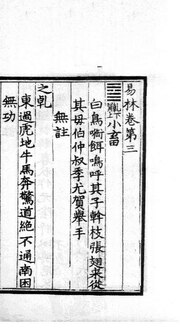 易林卷第三
䷈ 乾下巽上 小畜
白鳥銜餌鳴呼其子幹枝張翅来從
其母伯仲叔季尤賀舉手
無註
之乹
東過虎地牛馬奔驚道絕不通南困
無功